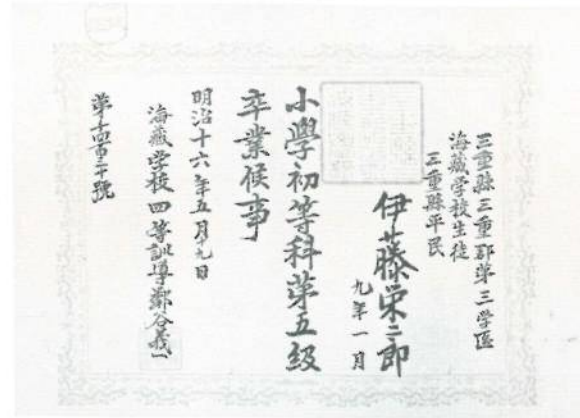 三重縣三重郡第三学区
海蔵学校生徒
三重縣平民
伊藤栄三郎
九年一月
小學初等科第五級
卒業候事
明治十六年五月九日
海蔵学校四等訓導鄭谷義一